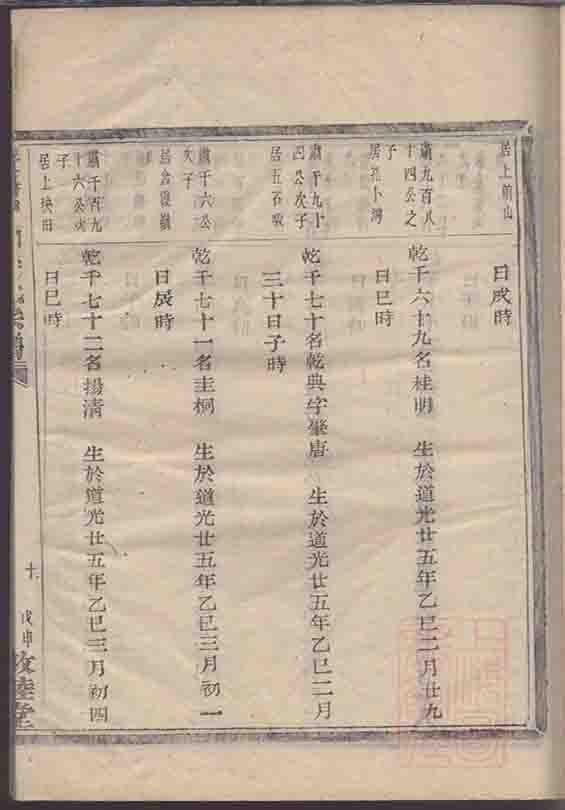 居上嶺山
日戌時
肅九百八
十四公之
子
居乳卜灣
乾千六十九名桂明 生於道光廿五年乙巳二月廿九
日巳時
肅千九十
四公次子
居五石
乾千七十名乾典字肇唐 生於道光廿五年乙巳二月
三十日子時
肅千六公
次子
乾千七十一名圭桐 生於道光廿五年乙巳三月初一
日辰時
肅千百九
十六公次
子
居上塅田
乾千七十二名揚清 生於道光廿五年乙巳三月初四
日巳時
戊申
敦睦堂